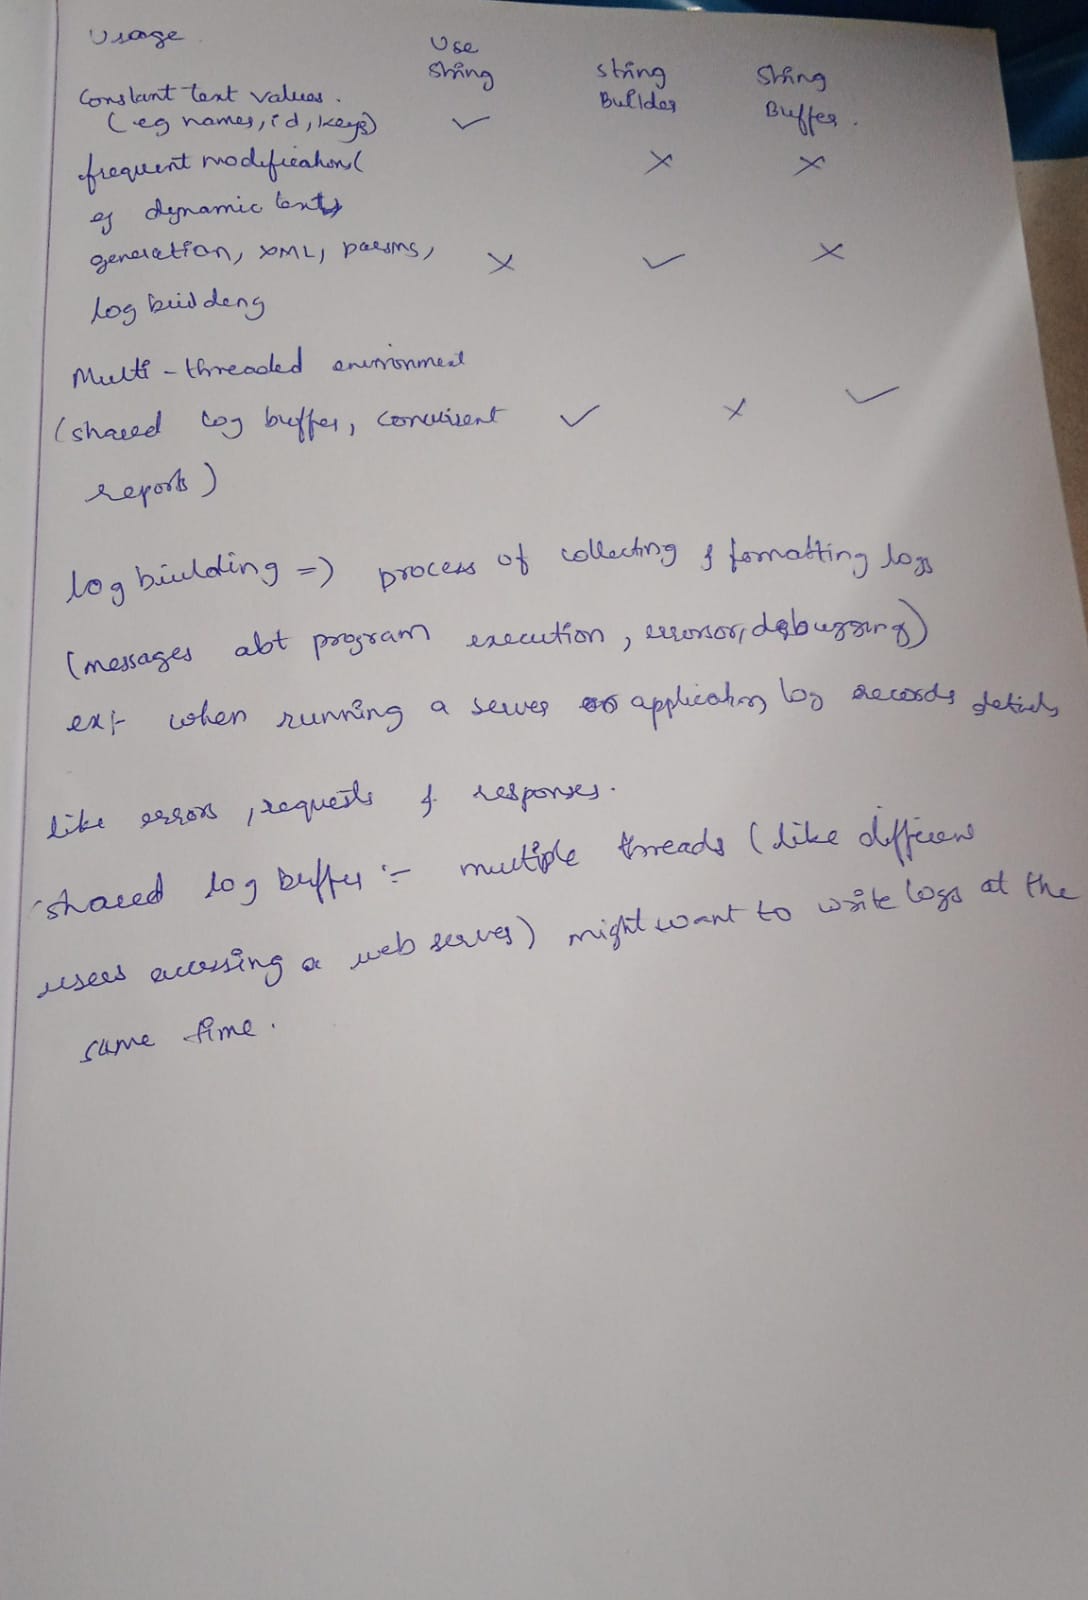 Usage Use String String Builder String Buffer.
Constant text values.
(eg names, id, keys) ✓ ✗ ✗
frequent modifications(
eg dynamic texts
generation, XML, parsing, ✗ ✓ ✗
log building
Multi-threaded environment
(shared log buffer, concurrent ✓ ✗ ✓
reports)
log building => process of collecting & formatting logs
(messages abt program execution, errors, debugging)
ex:- when running a server or application, log records details
like errors, requests & responses.
shared log buffer :- multiple threads (like different
users accessing a web server) might want to write logs at the
same time.